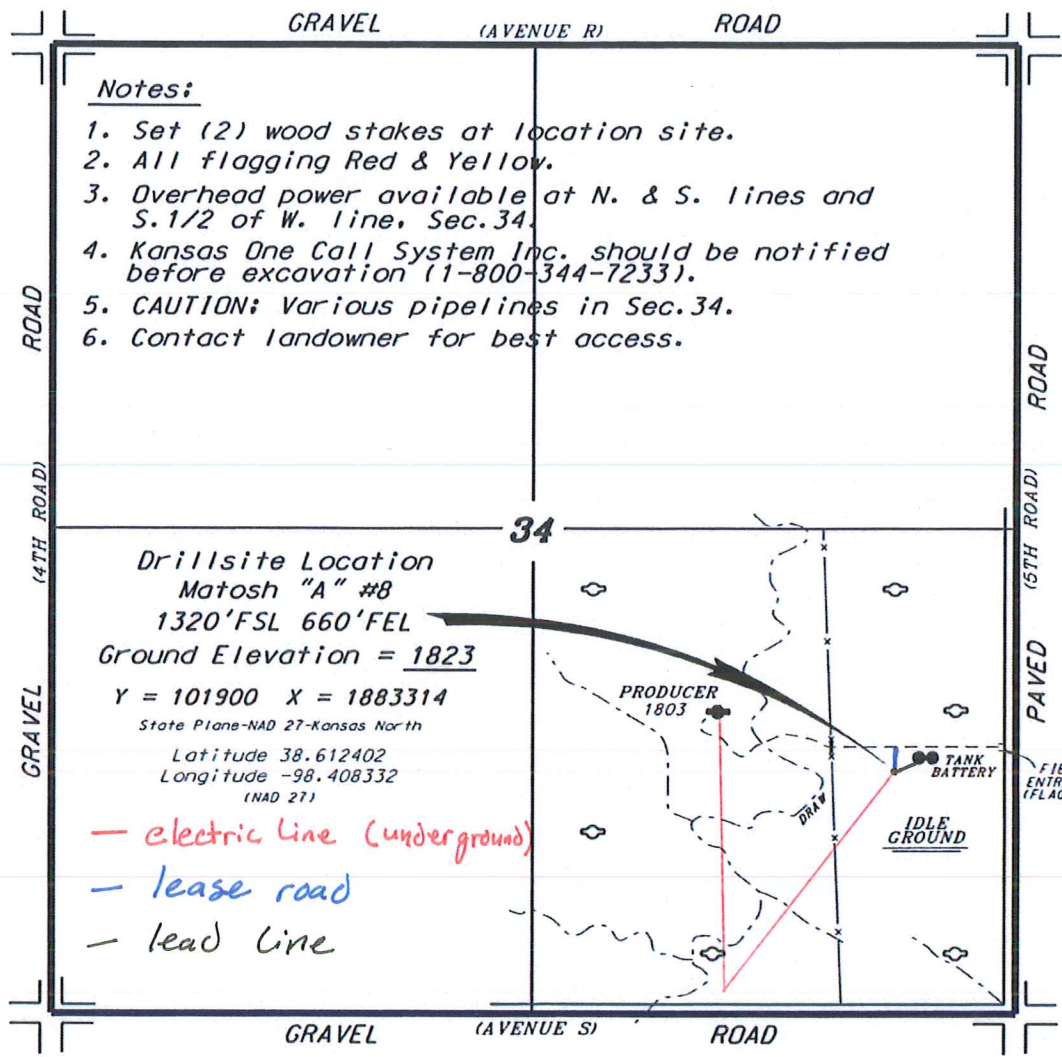 GRAVEL (AVENUE R) ROAD
Notes:
1. Set (2) wood stakes at location site.
2. All flagging Red & Yellow.
3. Overhead power available at N. & S. lines and
S.1/2 of W. line, Sec.34.
4. Kansas One Call System Inc. should be notified
before excavation (1-800-344-7233).
5. CAUTION: Various pipelines in Sec.34.
6. Contact landowner for best access.
ROAD
(4TH ROAD)
GRAVEL
ROAD
(5TH ROAD)
PAVED
34
Drillsite Location
Matosh "A" #8
1320'FSL 660'FEL
Ground Elevation = 1823
Y = 101900 X = 1883314
State Plane-NAD 27-Kansas North
Latitude 38.612402
Longitude -98.408332
(NAD 27)
— electric line (underground)
— lease road
— lead line
PRODUCER
1803
TANK
BATTERY
DRAW
IDLE
GROUND
GRAVEL (AVENUE S) ROAD